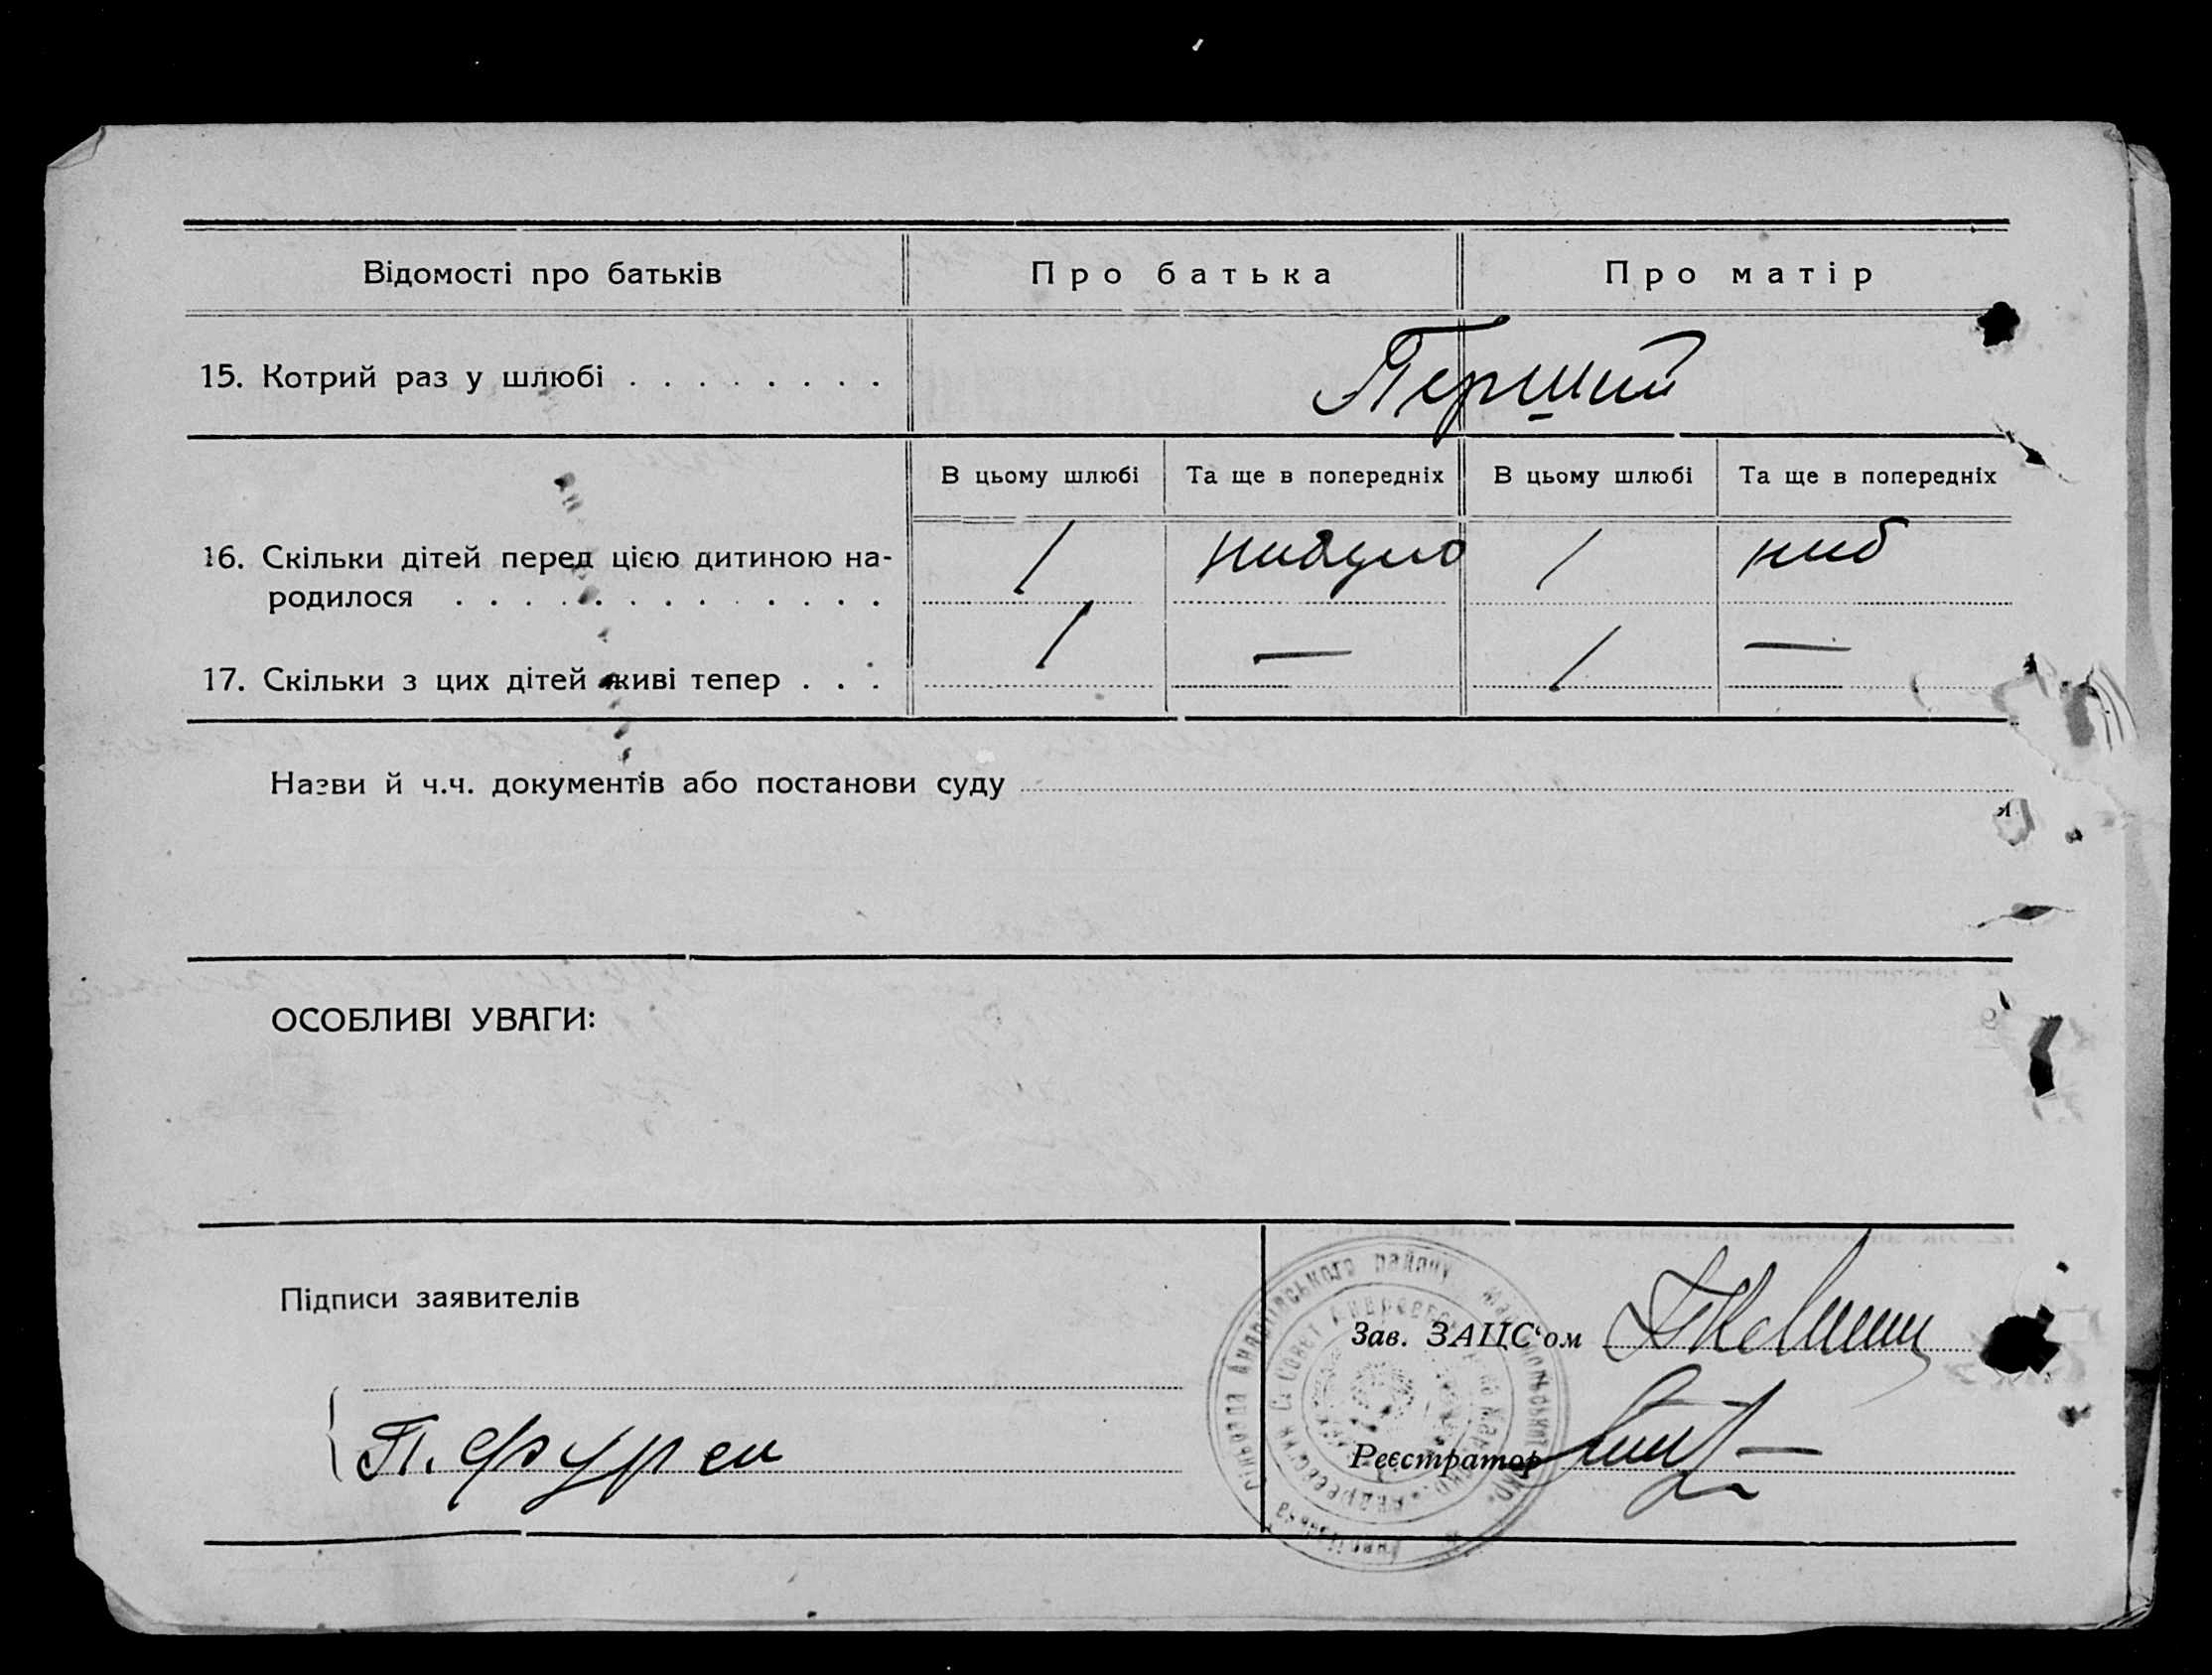 Відомості про батьків
Про батька
Про матір
15. Котрий раз у шлюбі . . . . . . . .
Перший
В цьому шлюбі
Та ще в попередніх
В цьому шлюбі
Та ще в попередніх
16. Скільки дітей перед цією дитиною на-
родилося . . . . . . . . . . . . .
/
/
17. Скільки з цих дітей живі тепер . . .
/
—
/
—
Назви й ч.ч. документів або постанови суду
ОСОБЛИВІ УВАГИ:
Підписи заявителів
Зав. ЗАЦС‘ом
Реєстратор